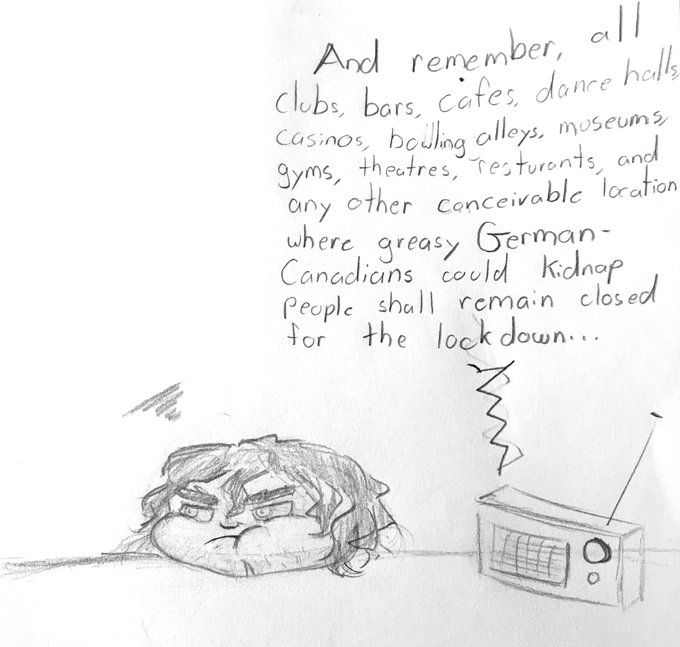 And remember, all
clubs, bars, cafes, dance halls
casinos, bowling alleys, museums,
gyms, theatres, resturants, and
any other conceivable location
where greasy German-
Canadians could kidnap
people shall remain closed
for the lockdown...